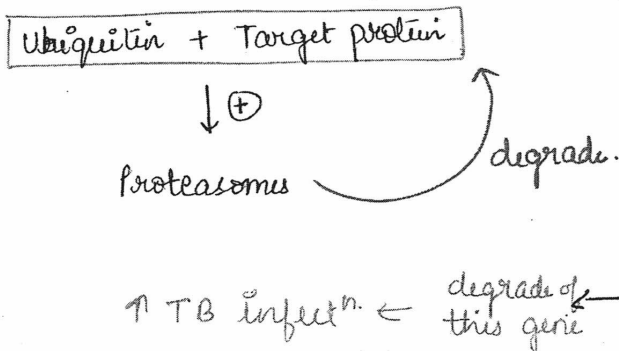 Ubiquitin + Target protein
↓ ⊕
Proteasomes
degrade.
↑ TB infectⁿ. ← degrade of
this gene ←